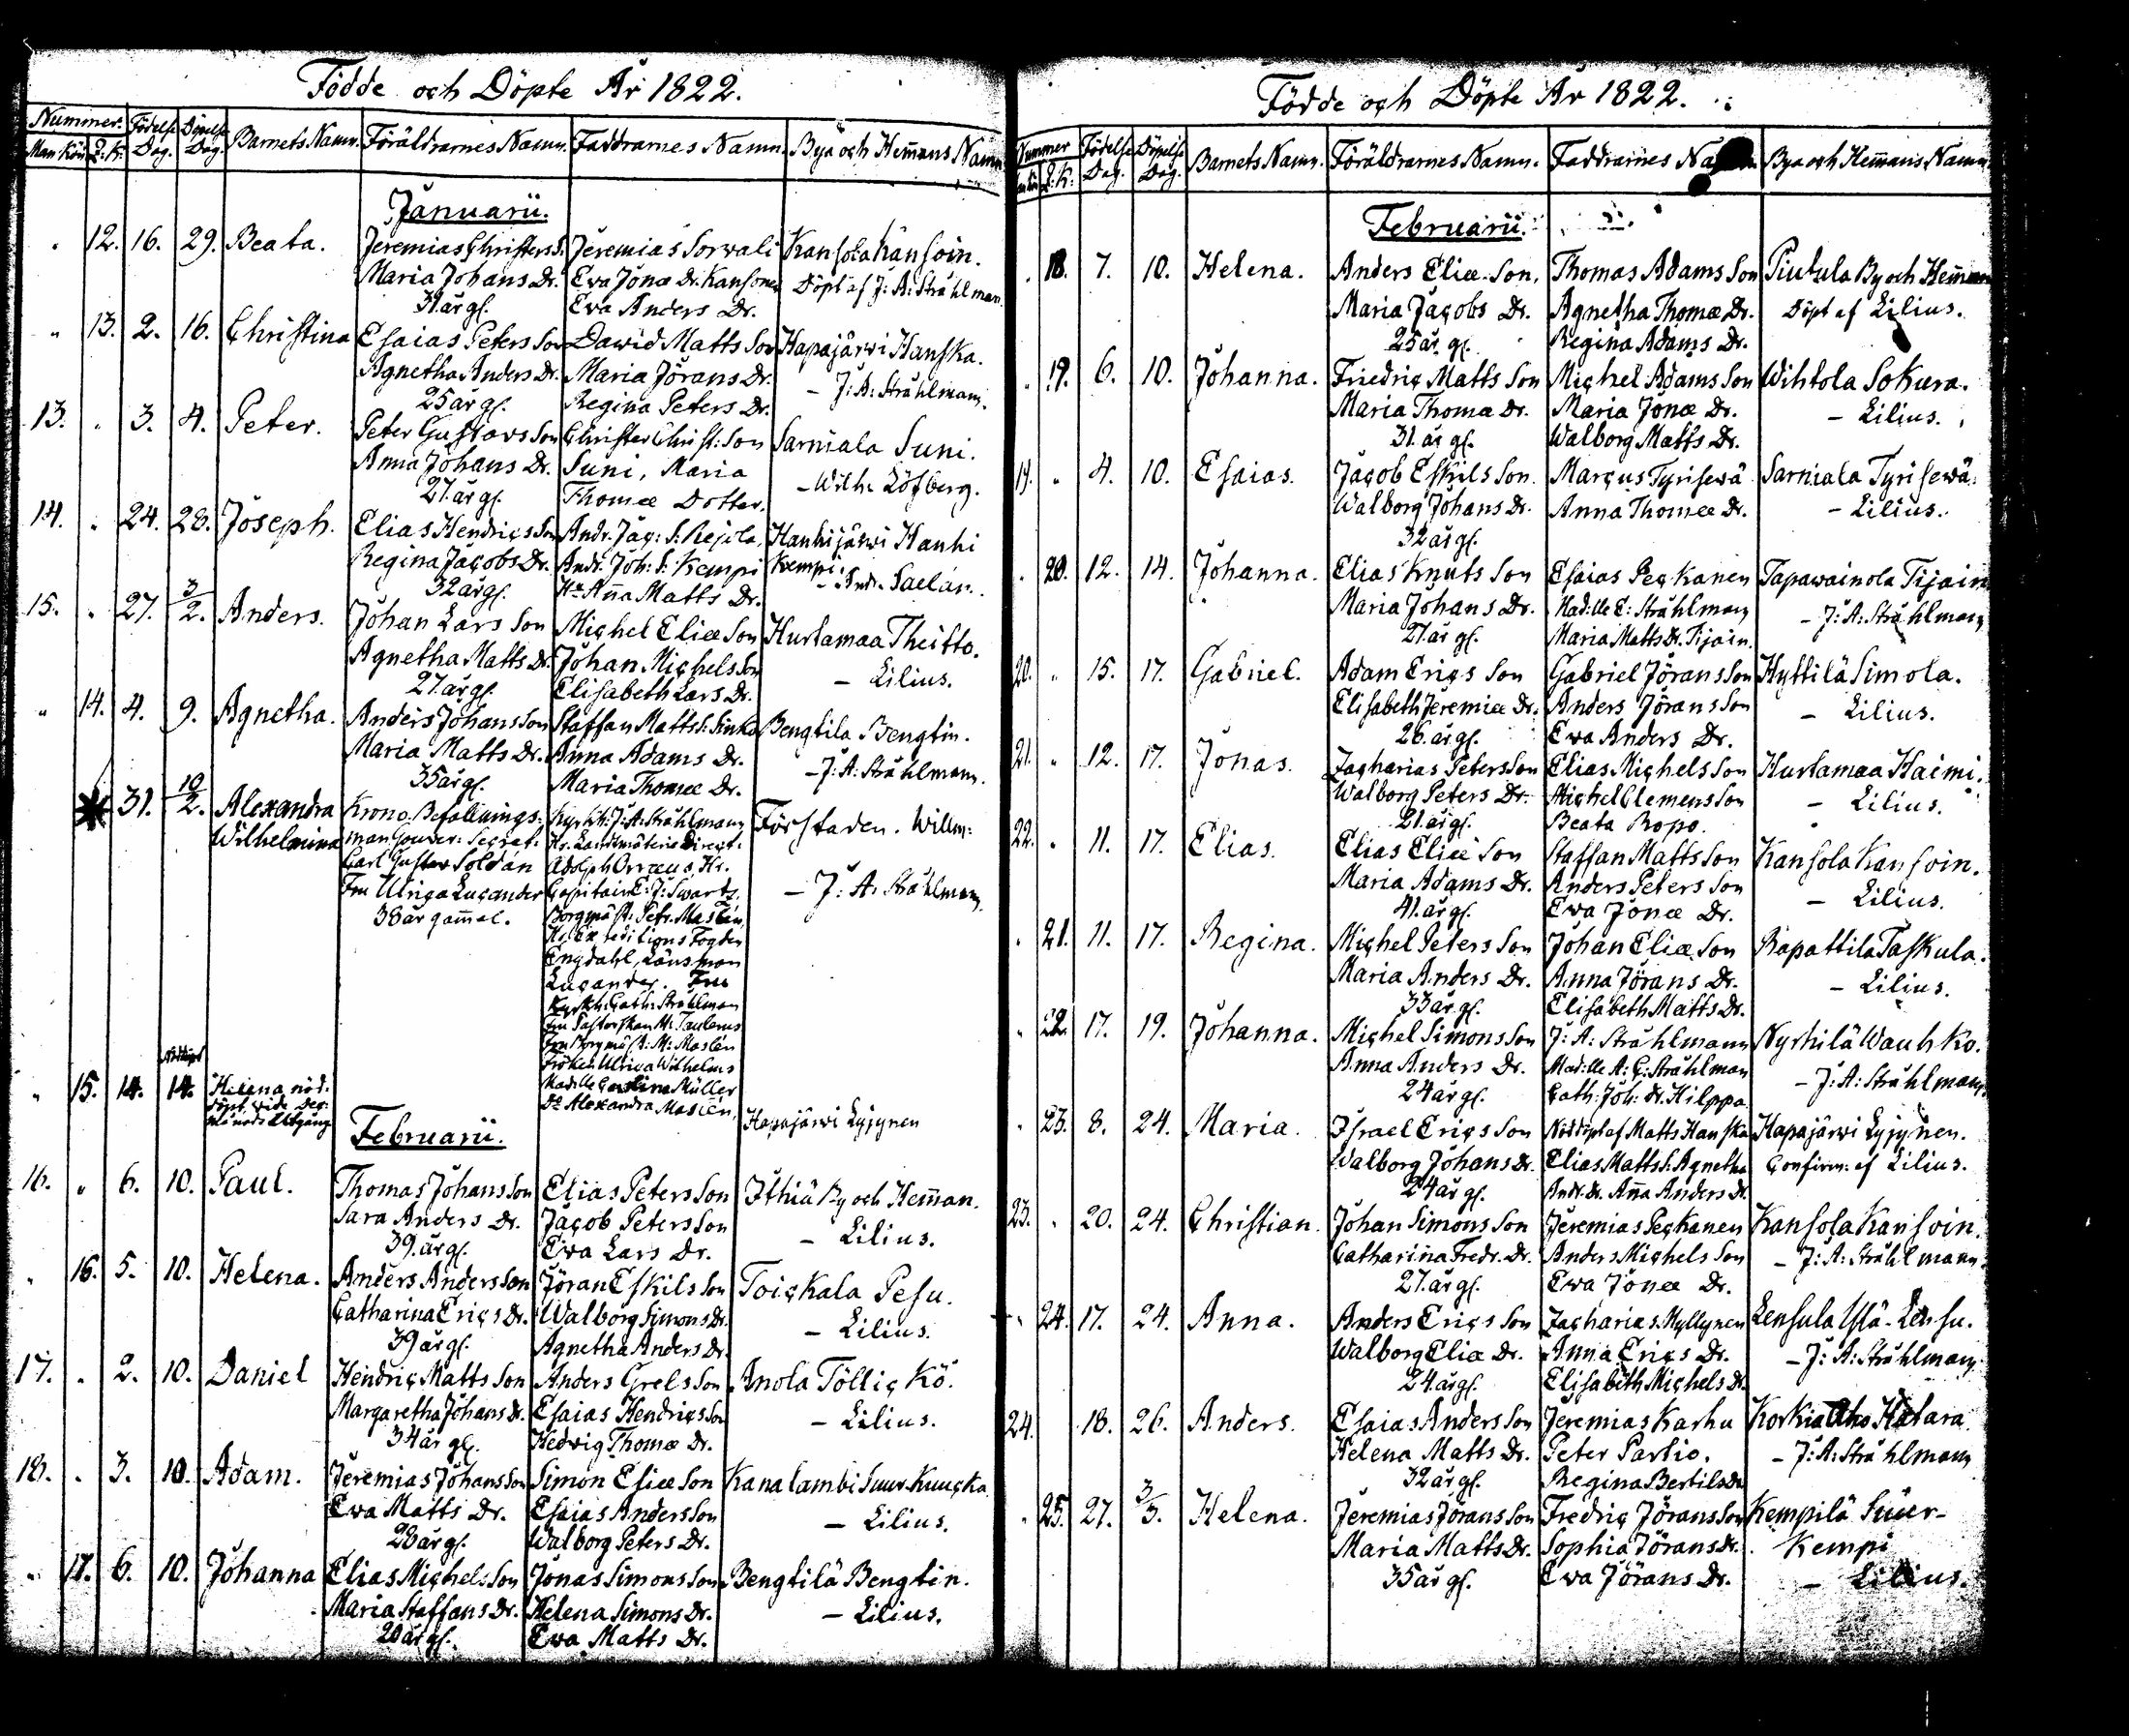 Födde och Döpte År 1822.
Nummer. Födelse Döpelse Barnets Namn. Föräldrarnes Namn. Faddrarnes Namn. Bya och Hem̄ans Namn
Man Kön Q:K: Dag. Dag.
Januarii.
12. 16. 29. Beata. Jeremias Christers S. Jeremias Sorwali Kansola Kansoin.
Maria Johans Dr. Eva Jonæ Dr. Kansonen Döpt af J: A: Stråhlman.
31. år gl. Eva Anders Dr.
13. 2. 16. Christina Esaias Peters Son Dawid Matts Son Hapajärwi Hanska.
Agnetha Anders Dr. Maria Jörans Dr. – J: A: Stråhlmann.
25 år gl. Regina Peters Dr.
13. 3. 4. Peter. Peter Gustavs Son Christer Christ: Son Sarniala Suni.
Anna Johans Dr. Suni, Maria – Wilh: Löfberg.
27. år gl. Thomæ Dotter.
14. 24. 28. Joseph. Elias Hendrics Son Andr. Jac: S: Rejola. Hanhijärwi Hanhi
Regina Jacobs Dr. Andr. Joh: S. Kempi Kempi.
32 år gl. Hu Aña Matts Dr. – Andr. Saelan.
15. 27. 3/2. Anders. Johan Lars Son Michel Eliæ Son Hurtamaa Theitto.
Agnetha Matts Dr. Johan Michels Son – Lilius.
27. år gl. Elisabeth Lars Dr.
14. 4. 9. Agnetha. Anders Johans Son Staffan Matts S. Sinko Bengtila Bengtin.
Maria Matts Dr. Anna Adams Dr. – J: A: Stråhlmann.
35 år gl. Maria Thomæ Dr.
31. 10/2. Alexandra Krono Befallnings: Kyrkh: J: A: Stråhlmann Förstaden. Willm:
Wilhelmina man Gouver: Secret: Hr. Landtmäterie Direct:
Carl Gustav Soldan Adolph Orræus, Hr.
Fru Ulrica Lucander Capitain C: J: Swartz, – J: A: Stråhlmann.
38 år gam̄al. Borgmäst: Petr. Maslén,
Hr. Expeditions Fogden
Engdahl, Länsman
Lucander. Fru
Kyrkh: Cath: Stråhlman
Fru Pastorskan M: Taulerus
Fru Borgmäst: M: Maslén
Fröken Ulrica Wilhelms
Mad:lle Carolina Müller
Do Alexandra Maslén.
15. 14. 14. Helena nöd. Hapajärwi Lyjynen
döpt. wide Dec:
månads Utgång
Februarii.
16. 6. 10. Paul. Thomas Johans Son Elias Peters Son Ithiä By och Hem̄an.
Sara Anders Dr. Jacob Peters Son – Lilius.
39. år gl. Eva Lars Dr.
16. 5. 10. Helena. Anders Anders Son Jöran Eskils Son Toickala Pesu.
Catharina Erics Dr. Walborg Simons Dr. – Lilius.
39 år gl. Agnetha Anders Dr.
17. 2. 10. Daniel Hendric Matts Son Anders Grels Son Anola Töllickö.
Margaretha Johans Dr. Esaias Hendrics Son – Lilius.
34 år gl. Hedwig Thomæ Dr.
18. 3. 10. Adam. Jeremias Johans Son Simon Eliæ Son Kanalambi Suur Kuucka.
Ewa Matts Dr. Esaias Anders Son – Lilius.
28 år gl. Walborg Peters Dr.
17. 6. 10. Johanna Elias Michels Son Jonas Simons Son Bengtilä Bengtin.
Maria Staffans Dr. Helena Simons Dr. – Lilius.
20 år gl. Ewa Matts Dr.
Födde och Döpte År 1822.
Nummer Födelse Döpelse Barnets Namn. Föräldrarnes Namn. Faddrarnes Namn Bya och Hem̄ans Namn
Q:K: Dag. Dag.
Februarii.
18. 7. 10. Helena. Anders Eliæ Son, Thomas Adams Son Piutula By och Hem̄an
Maria Jacobs Dr. Agnetha Thomæ Dr. Döpt af Lilius.
25 år gl. Regina Adams Dr.
19. 6. 10. Johanna. Friedric Matts Son Michel Adams Son Wihtola Sokura.
Maria Thomæ Dr. Maria Jonæ Dr. – Lilius.
31. år gl. Walborg Matts Dr.
19. 4. 10. Esaias. Jacob Eskils Son. Marcus Tyrisewä Sarniala Tyrisewä.
Walborg Johans Dr. Anna Thomæ Dr. – Lilius.
32 år gl.
20. 12. 14. Johanna. Elias Knuts Son Esaias Peckanen Tapawainola Tijain
Maria Johans Dr. Mad:lle E: Stråhlmann – J: A: Stråhlmann
27. år gl. Maria Matts Dr. Tijain.
20. 15. 17. Gabriel. Adam Erics Son Gabriel Jörans Son Hyttilä Simola.
Elisabeth Jeremiæ Dr. Anders Jörans Son – Lilius.
26. år gl. Ewa Anders Dr.
21. 12. 17. Jonas. Zacharias Peters Son Elias Michels Son Hurtamaa Haimi.
Walborg Peters Dr. Michel Clemens Son – Lilius.
21. år gl. Beata Ropo.
22. 11. 17. Elias. Elias Eliæ Son Staffan Matts Son Kansola Kansoin.
Maria Adams Dr. Anders Peters Son – Lilius.
41. år gl. Ewa Jonæ Dr.
21. 11. 17. Regina. Michel Peters Son Johan Eliæ Son Rapattila Taskula.
Maria Anders Dr. Anna Jörans Dr. – Lilius.
33 år gl. Elisabeth Matts Dr.
22. 17. 19. Johanna. Michel Simons Son J: A: Stråhlmann Nyrhilä Wauhko.
Anna Anders Dr. Mad:lle A: C: Stråhlman – J: A: Stråhlmann.
24 år gl. Cath: Joh: dr. Hilppa
23. 8. 24. Maria. Israel Erics Son Nöddöpt af Matts Hanska Hapajärwi Lyjynen.
Walborg Johans Dr. Elias Matts S. Agnetha Confirm: af Lilius.
24 år gl. Andr. dr. Aña Anders dr.
23. 20. 24. Christian. Johan Simons Son Jeremias Peckanen Kansola Kansoin.
Catharina Fredr. Dr. Anders Michels Son – J: A: Stråhlmann.
27. år gl. Ewa Jonæ Dr.
24. 17. 24. Anna. Anders Erics Son Zacharias Myllynen Lensula Ylä-Lensu.
Walborg Eliæ Dr. Anna Erics Dr. – J: A: Stråhlmann.
24. år gl. Elisabeth Michels Dr.
24. 18. 26. Anders. Esaias Anders Son Jeremias Karhu Korkia Aho Hatara
Helena Matts Dr. Peter Partio. – J: A: Stråhlmann
32 år gl. Regina Bertils Dr.
25. 27. 3/3. Helena. Jeremias Jörans Son Fredric Jörans Son Kempilä Suur-
Maria Matts Dr. Sophia Jörans Dr. Kempi
35 år gl. Ewa Jörans Dr. – Lilius.